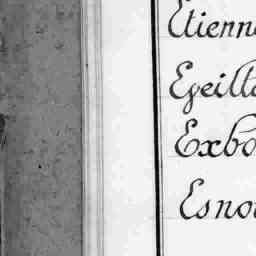 Etienn
Eyeill
Exbo
Esno